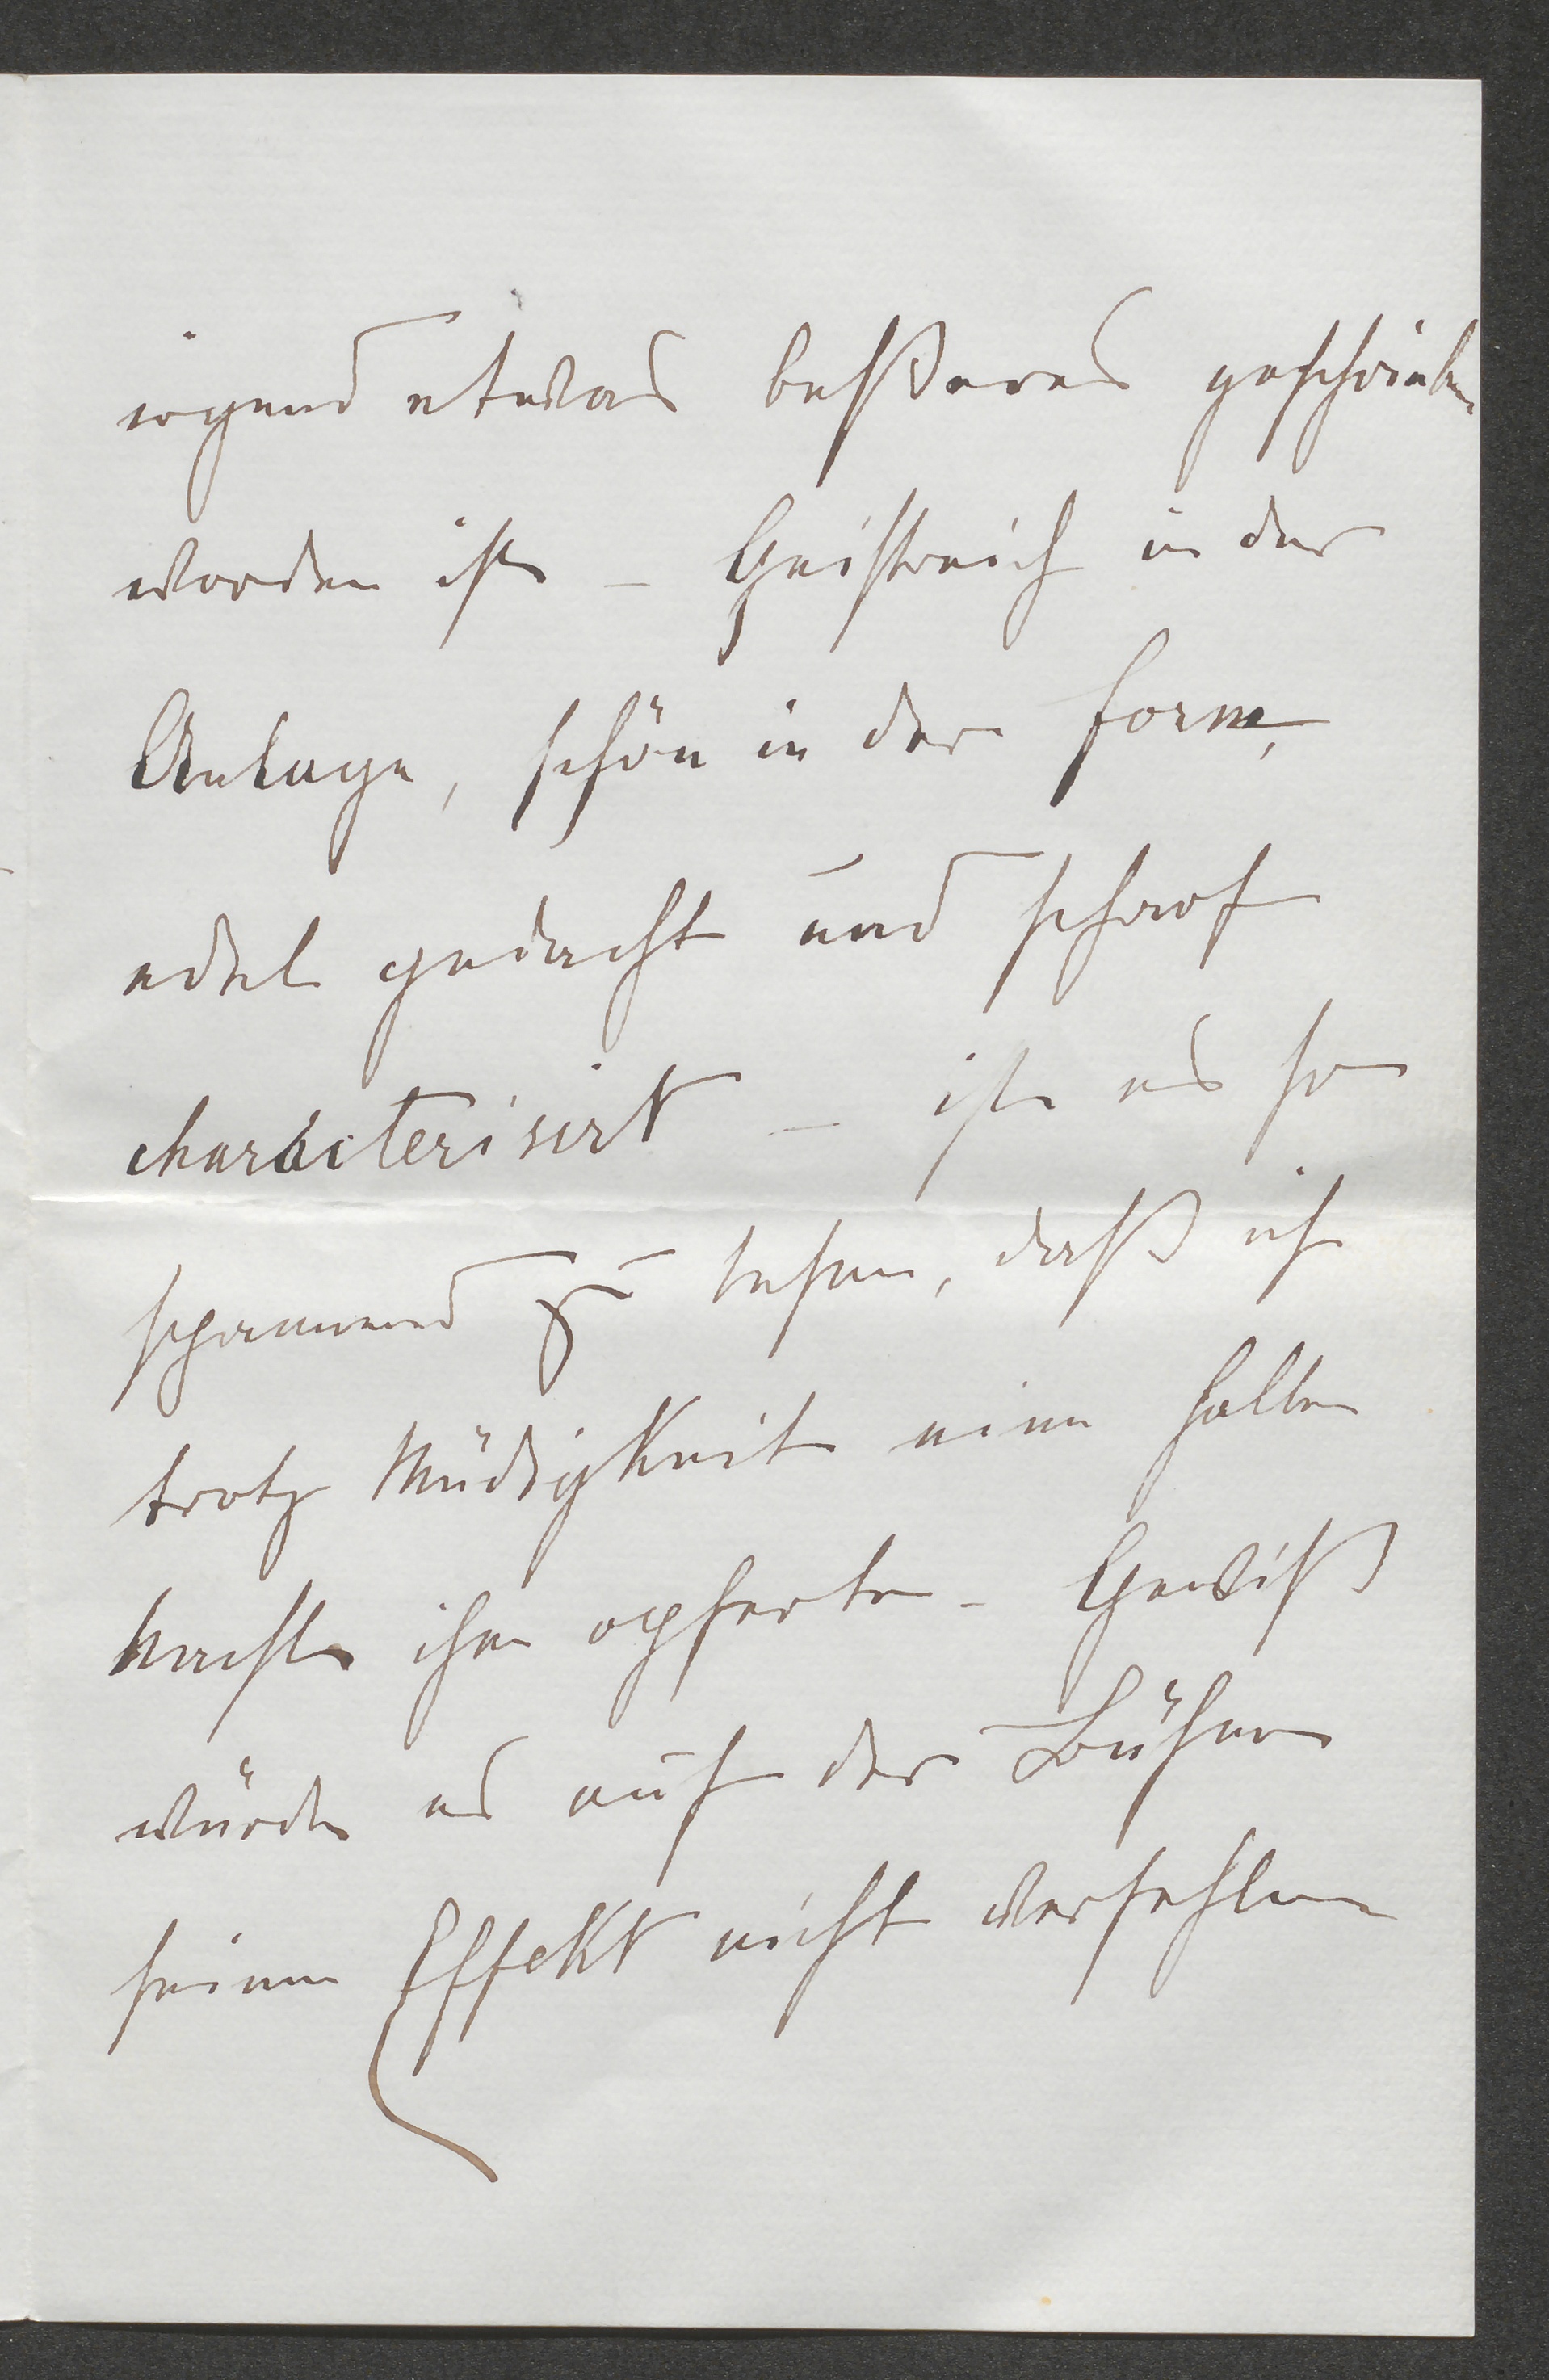 irgend etwas beßeres geschrieben
worden ist – Geistreich in der
Anlage, schön in der Form,
edel gedacht und scharf
characterisirt – ist es so
spannend zu lesen, daß ich
trotz Müdigkeit eine halbe
Nacht ihm opferte – Gewiß
würde es auf der Bühne
seinen Effekt nicht verfehlen